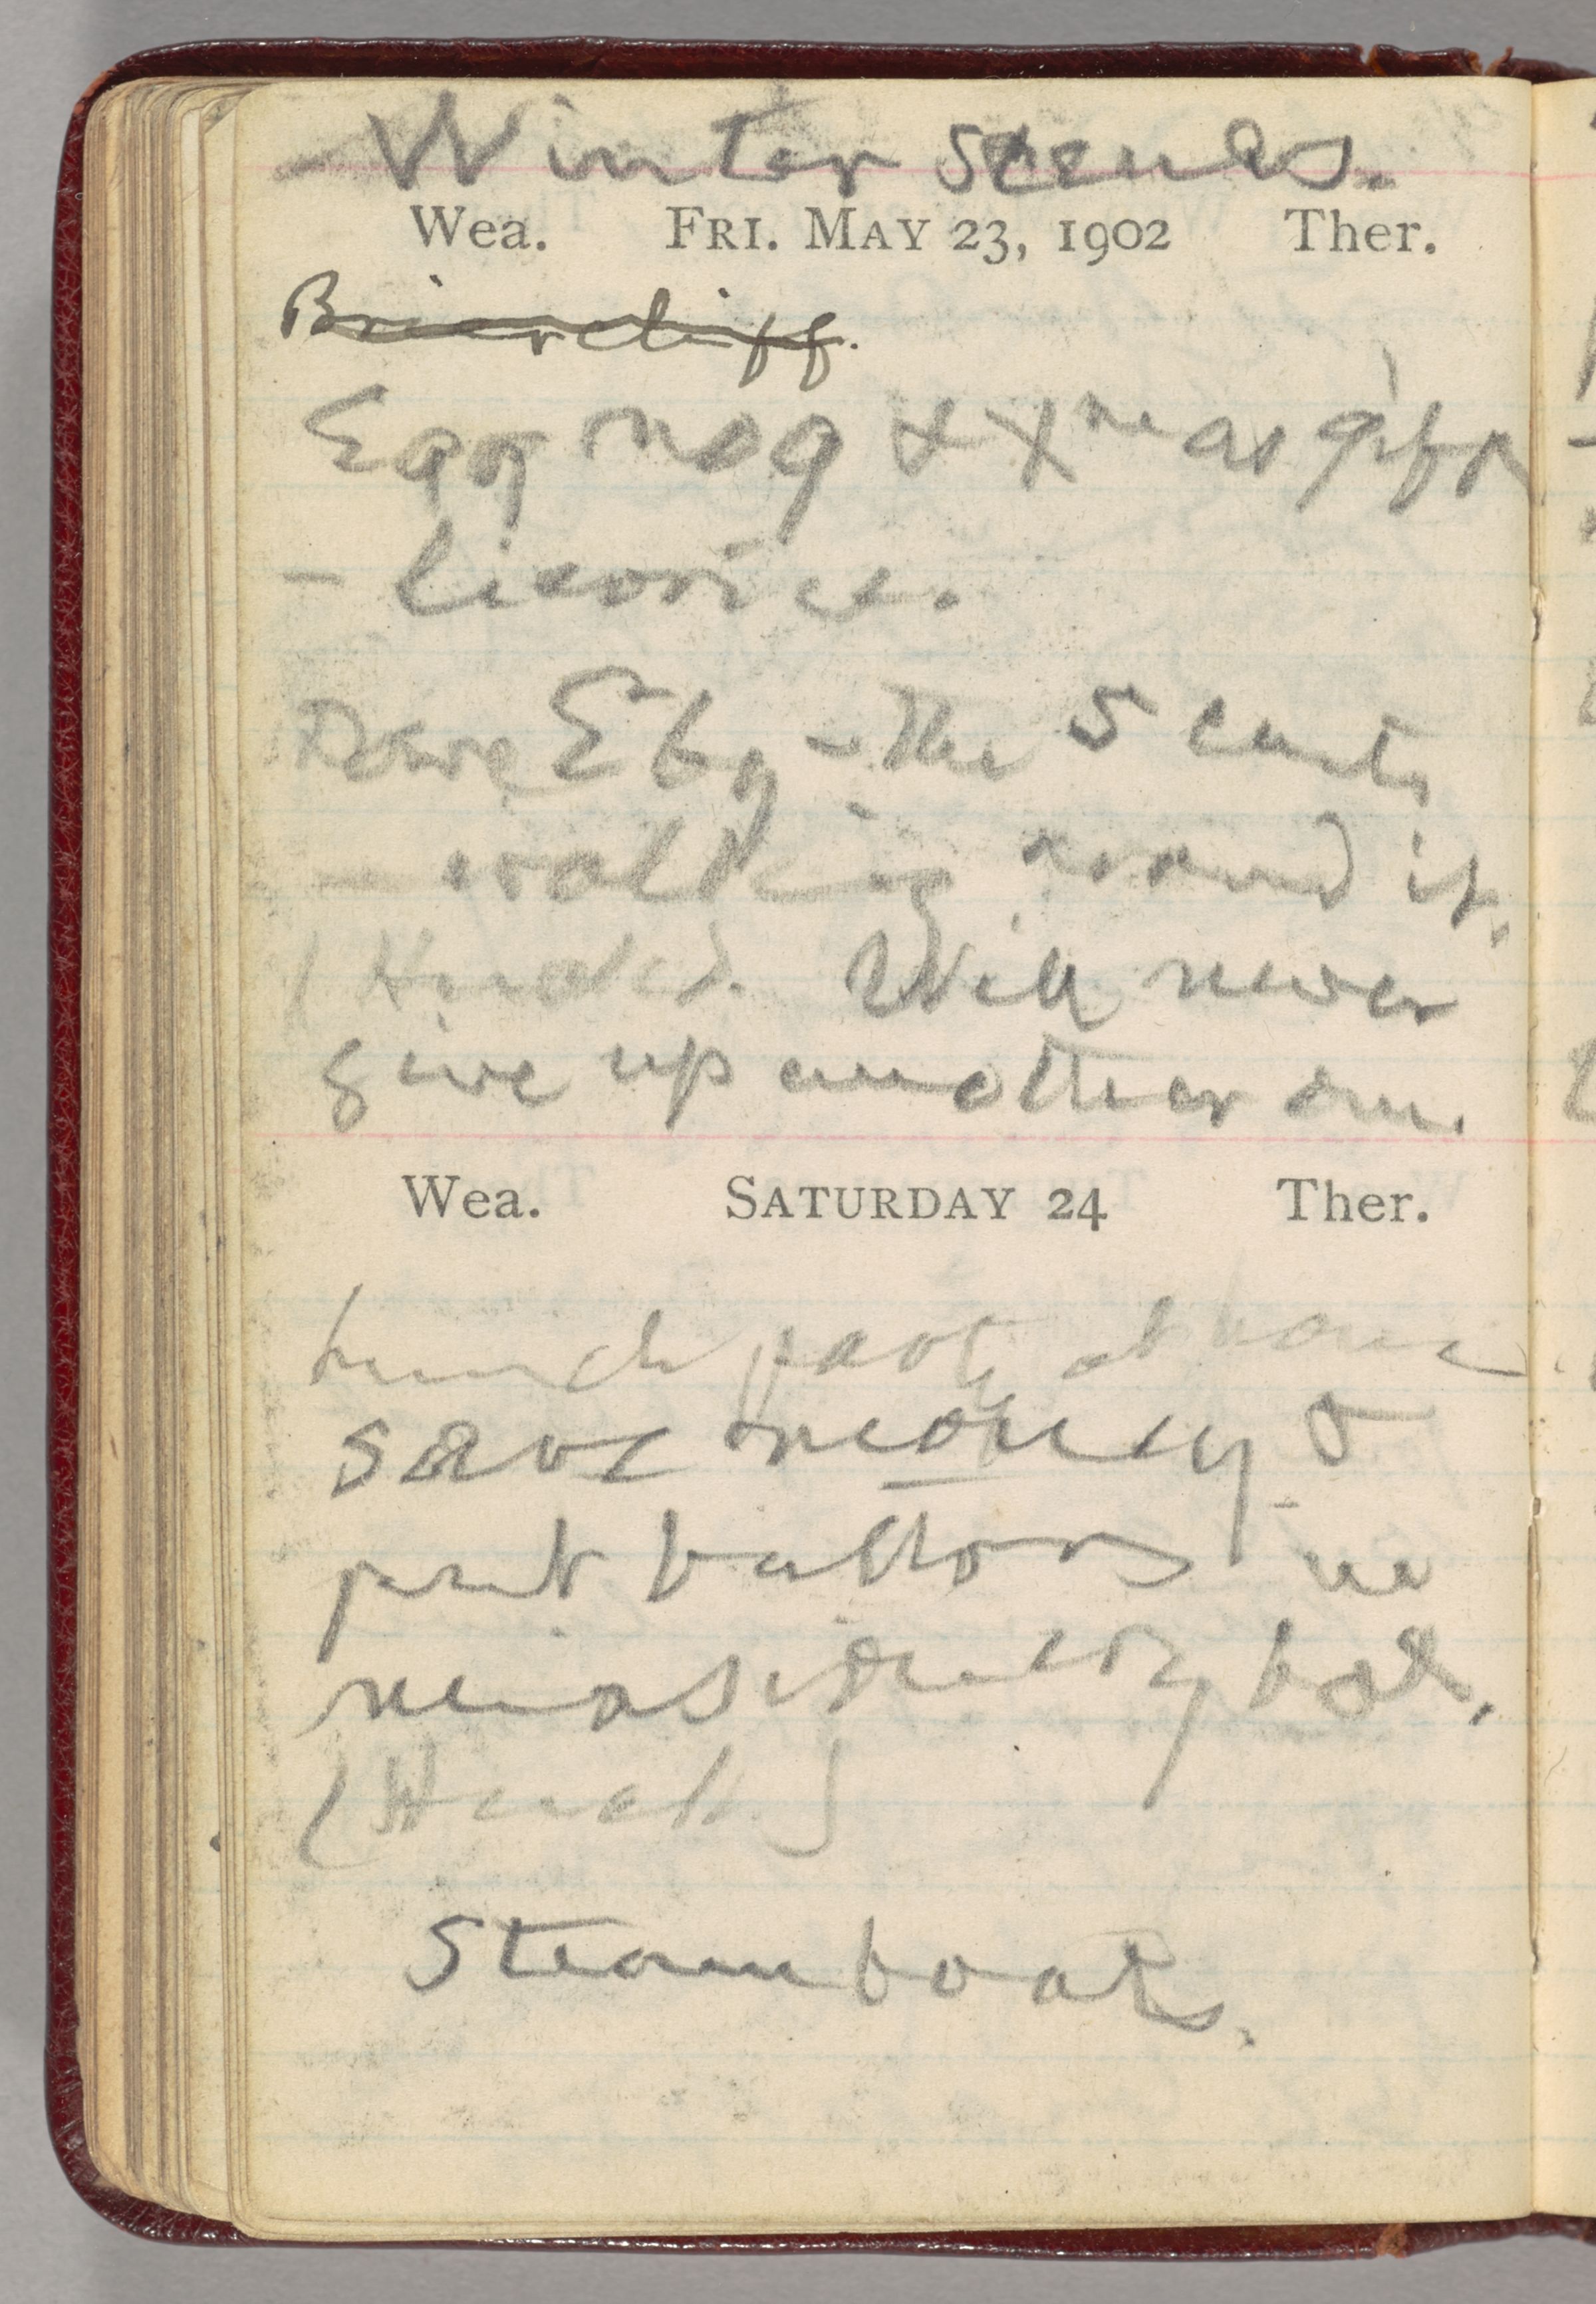 – Winter scenes.
Wea. FRI. MAY 23, 1902 Ther.
Briarcliff.
Egg nog & Xmas gifts
– Licorice.
Dave Eby – the 5 cents
– walking around it.
(Huck). Will never
give up another one.
Wea. SATURDAY 24 Ther.
Lunch party at home
save money &
put buttons in
missionary box.
(Huck)
Steamboats.